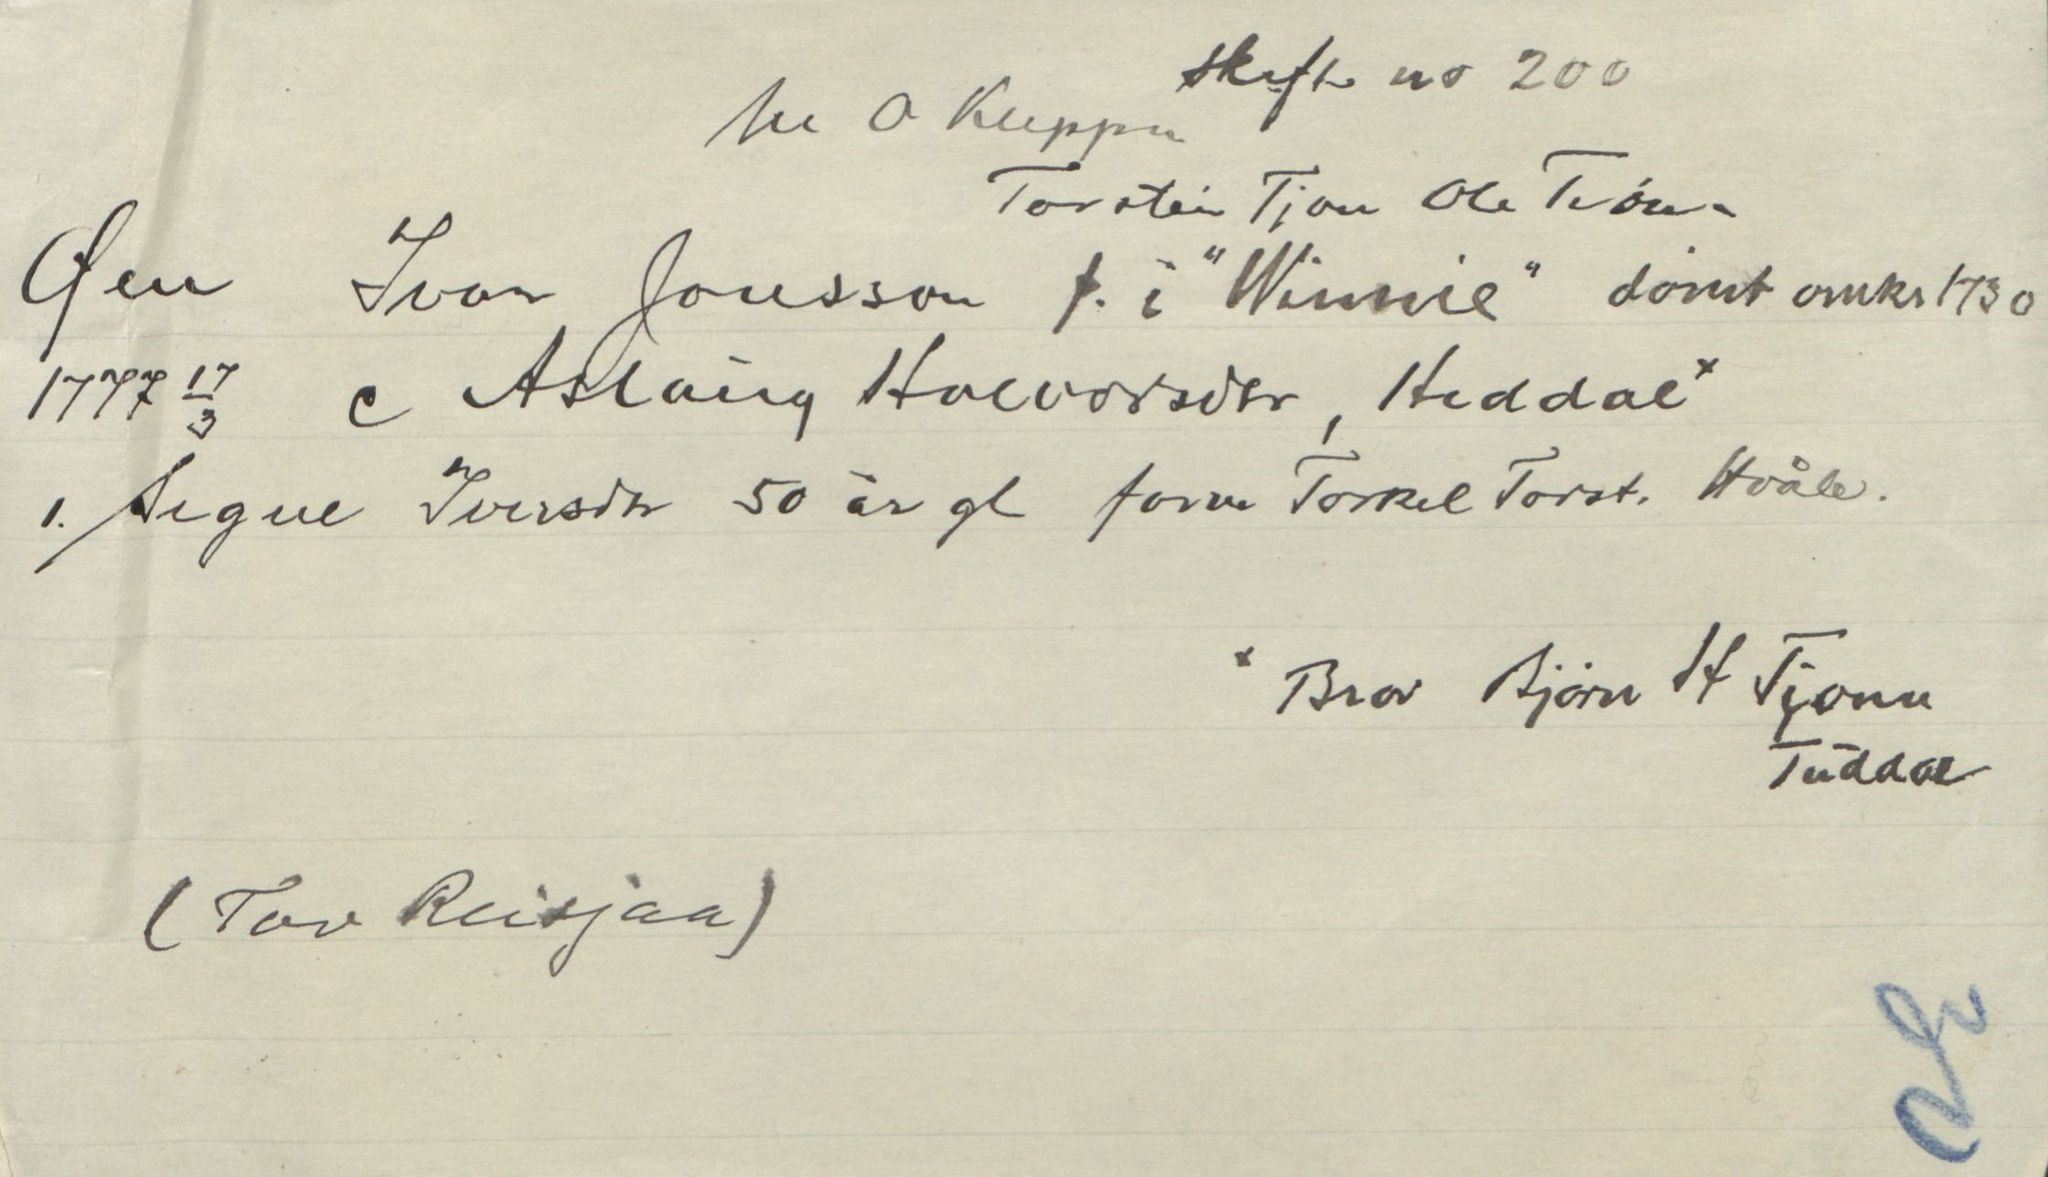 Skifte no 200
O Kleppen
Torstein Tjon Ole
Øen Ivar Jonsson f. i "Winnie" dömt omkr 1730
1777 17/3 c Aslaug Halvorsdtr, Heddal x
1. Signe Iversdtr 50 år gl form Torkel Torst. Hvåle.
x Bror Björn H Tjonn
Tuddal
(Tov Reisjaa)